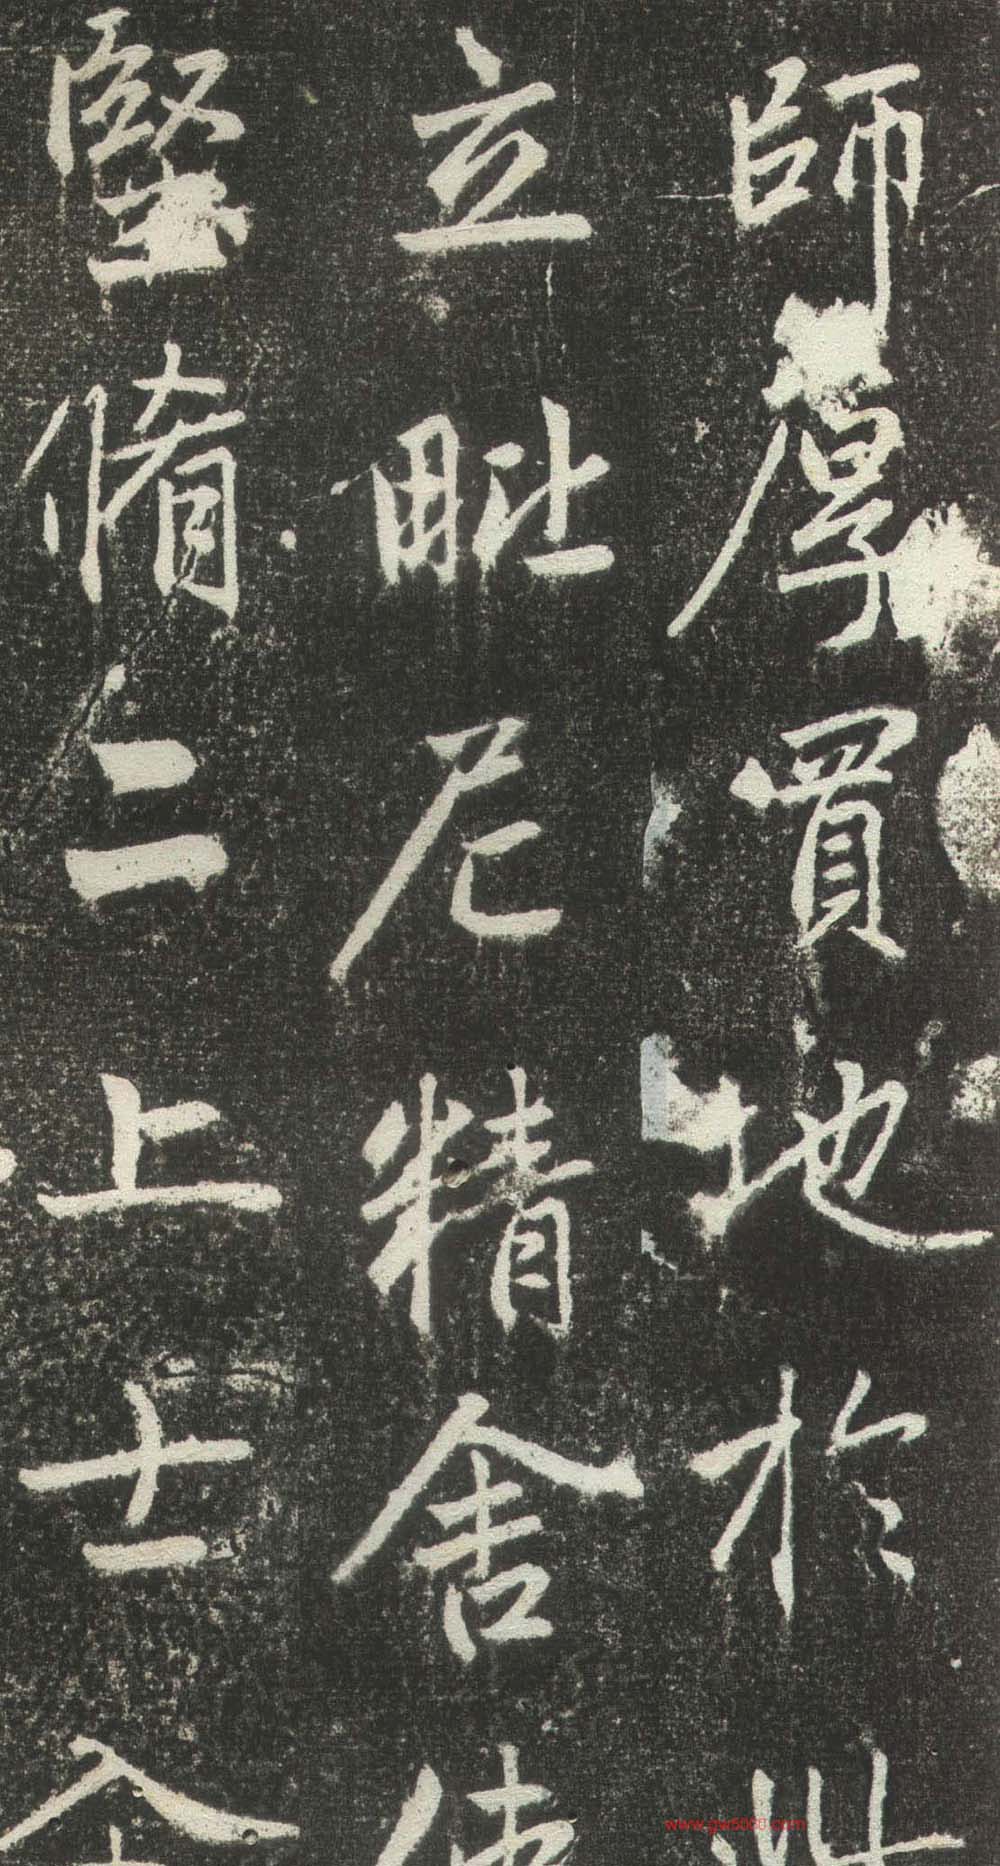 師厚買地於
立毗尼精舍
堅脩二上士
www.gw5000.com